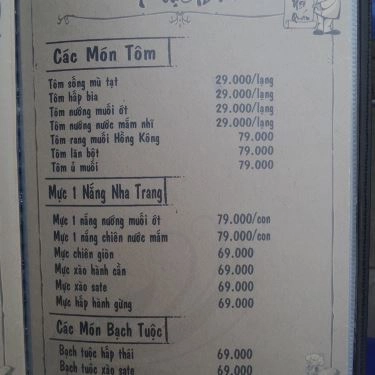 Các Món Tôm
Tôm sống mù tạt 29.000/lạng
Tôm hấp bia 29.000/lạng
Tôm nướng muối ớt 29.000/lạng
Tôm nướng nước mắm nhĩ 29.000/lạng
Tôm rang muối Hồng Kông 79.000
Tôm lăn bột 79.000
Tôm ủ muối 79.000
Mực 1 Nắng Nha Trang
Mực 1 nắng nướng muối ớt 79.000/con
Mực 1 nắng chiên nước mắm 79.000/con
Mực chiên giòn 69.000
Mực xào hành cần 69.000
Mực xào sate 69.000
Mực hấp hành gừng 69.000
Các Món Bạch Tuộc
Bạch tuộc hấp thái 69.000
Bạch tuộc xào sate 69.000